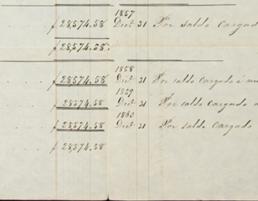 1857
ƒ 28,574.58 Dicb. 31 Por saldo cargado
ƒ 28,574.58.
1858
ƒ 28,574.58 Dicb. 31 Por saldo cargado á
1859
ƒ 28,574.58 Dicb. 31 Por saldo cargado
1860
ƒ 28,574.58 Dicb. 31 Por saldo cargado
ƒ 28,574.58